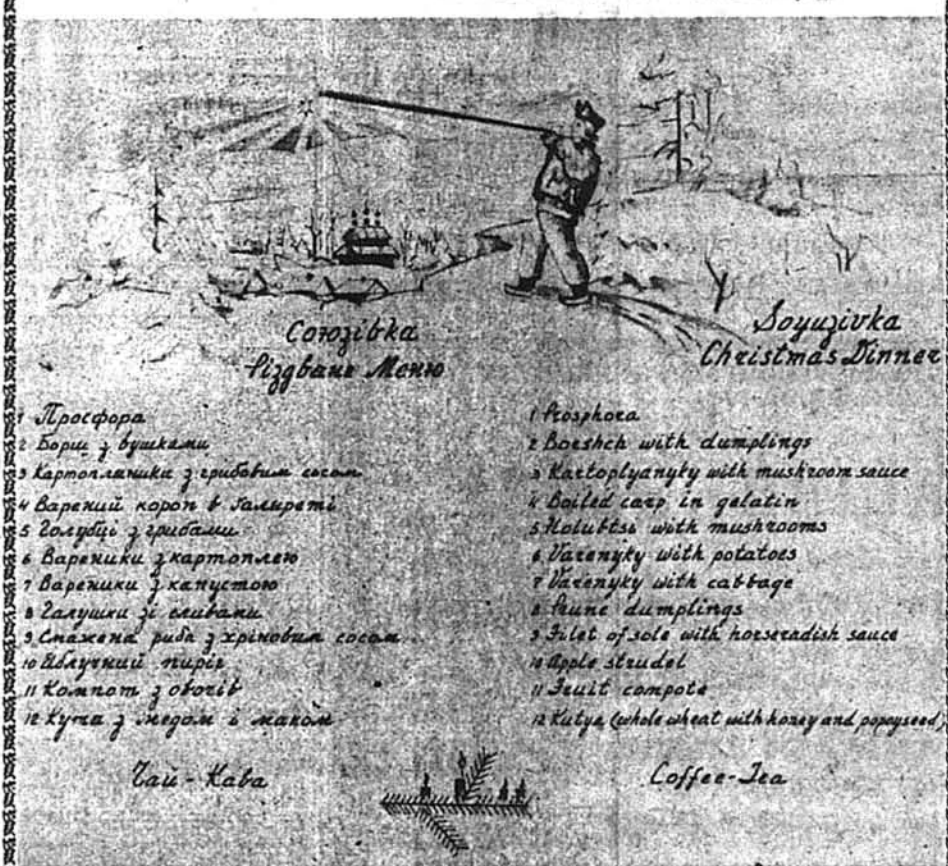 Союзівка
Різдвяне Меню
1 Просфора
2 Борщ з вушками
3 Картопляники з грибовим сосом
4 Варений короп в ґаляреті
5 Голубці з грибами
6 Вареники з картоплею
7 Вареники з капустою
8 Галушки зі сливами
9 Смажена риба з хріновим сосом
10 Яблучний пиріг
11 Компот з овочів
12 Кутя з медом і маком
Чай - Кава
Soyuzivka
Christmas Dinner
1 Prosphora
2 Borshch with dumplings
3 Kartoplyanyky with mushroom sauce
4 Boiled carp in gelatin
5 Holubtsi with mushrooms
6 Varenyky with potatoes
7 Varenyky with cabbage
8 Prune dumplings
9 Filet of sole with horseradish sauce
10 Apple strudel
11 Fruit compote
12 Kutya (whole wheat with honey and poppyseed)
Coffee-Tea